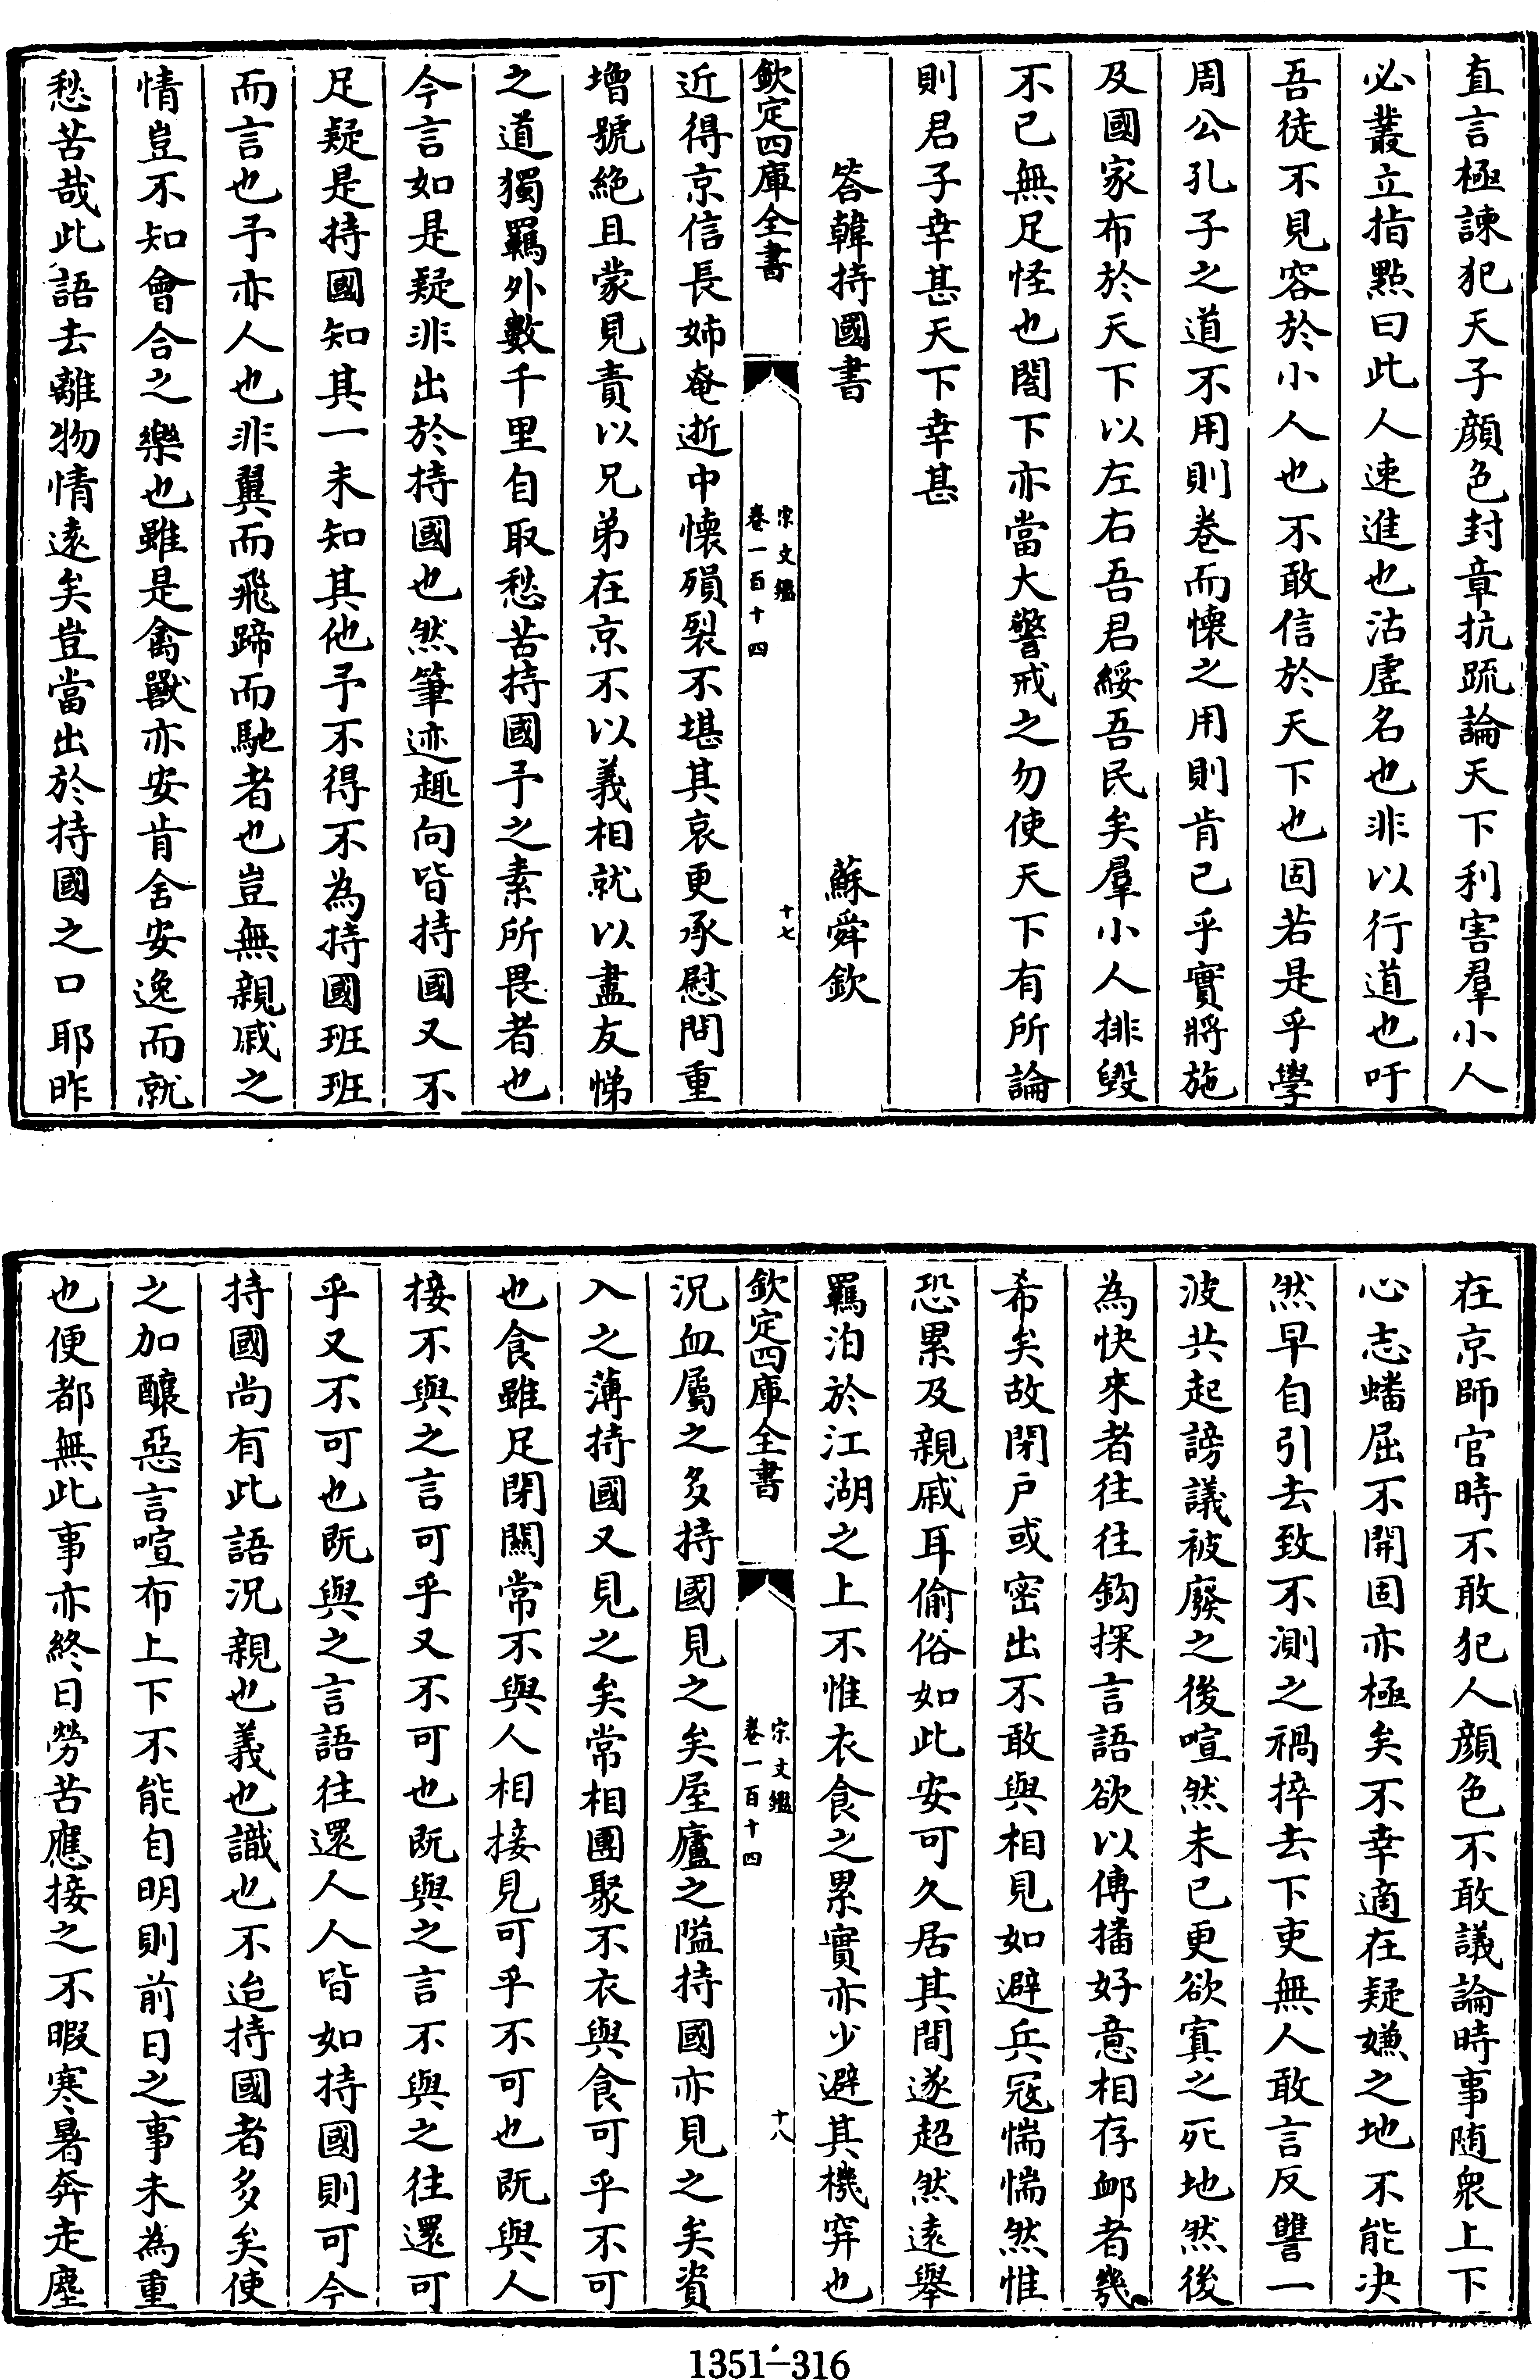 直言極諫犯天子顔色封章抗疏論天下利害羣小人
必叢立指點曰此人速進也沽虛名也非以行道也吁
吾徒不見容於小人也不敢信於天下也固若是乎學
周公孔子之道不用則卷而懷之用則肯已乎實將施
及國家布於天下以左右吾君綏吾民矣羣小人排毀
不已無足怪也閤下亦當大警戒之勿使天下有所論
則君子幸甚天下幸甚
答韓持國書 蘇舜欽
欽定四庫全書 宋文鑑 卷一百十四 十七
近得京信長姊奄逝中懷殞裂不堪其哀更承慰問重
增號絶且蒙見責以兄弟在京不以義相就以盡友悌
之道獨羈外數千里自取愁苦持國予之素所畏者也
今言如是疑非出於持國也然筆迹趣向皆持國又不
足疑是持國知其一未知其他予不得不為持國班班
而言也予亦人也非翼而飛蹄而馳者也豈無親戚之
情豈不知會合之樂也雖是禽獸亦安肯舍安逸而就
愁苦哉此語去離物情遠矣豈當出於持國之口耶昨
在京師官時不敢犯人顔色不敢議論時事随衆上下
心志蟠屈不開固亦極矣不幸適在疑嫌之地不能决
然早自引去致不測之禍捽去下吏無人敢言反讐一
波共起謗議被廢之後喧然未已更欲寘之死地然後
為快來者往往鈎探言語欲以傳播好意相存䘏者幾
希矣故閉户或密出不敢與相見如避兵寇惴惴然惟
恐累及親戚耳偷俗如此安可久居其間遂超然遠舉
羈泊於江湖之上不惟衣食之累實亦少避其機穽也
欽定四庫全書 宋文鑑 卷一百十四 十八
況血屬之多持國見之矣屋廬之隘持國亦見之矣資
入之薄持國又見之矣常相團聚不衣與食可乎不可
也食雖足閉關常不與人相接見可乎不可也既與人
接不與之言可乎又不可也既與之言不與之往還可
乎又不可也既與之言語往還人人皆如持國則可今
持國尚有此語況親也義也識也不迨持國者多矣使
之加釀惡言喧布上下不能自明則前日之事未為重
也便都無此事亦終日勞苦應接之不暇寒暑奔走塵
1351-316